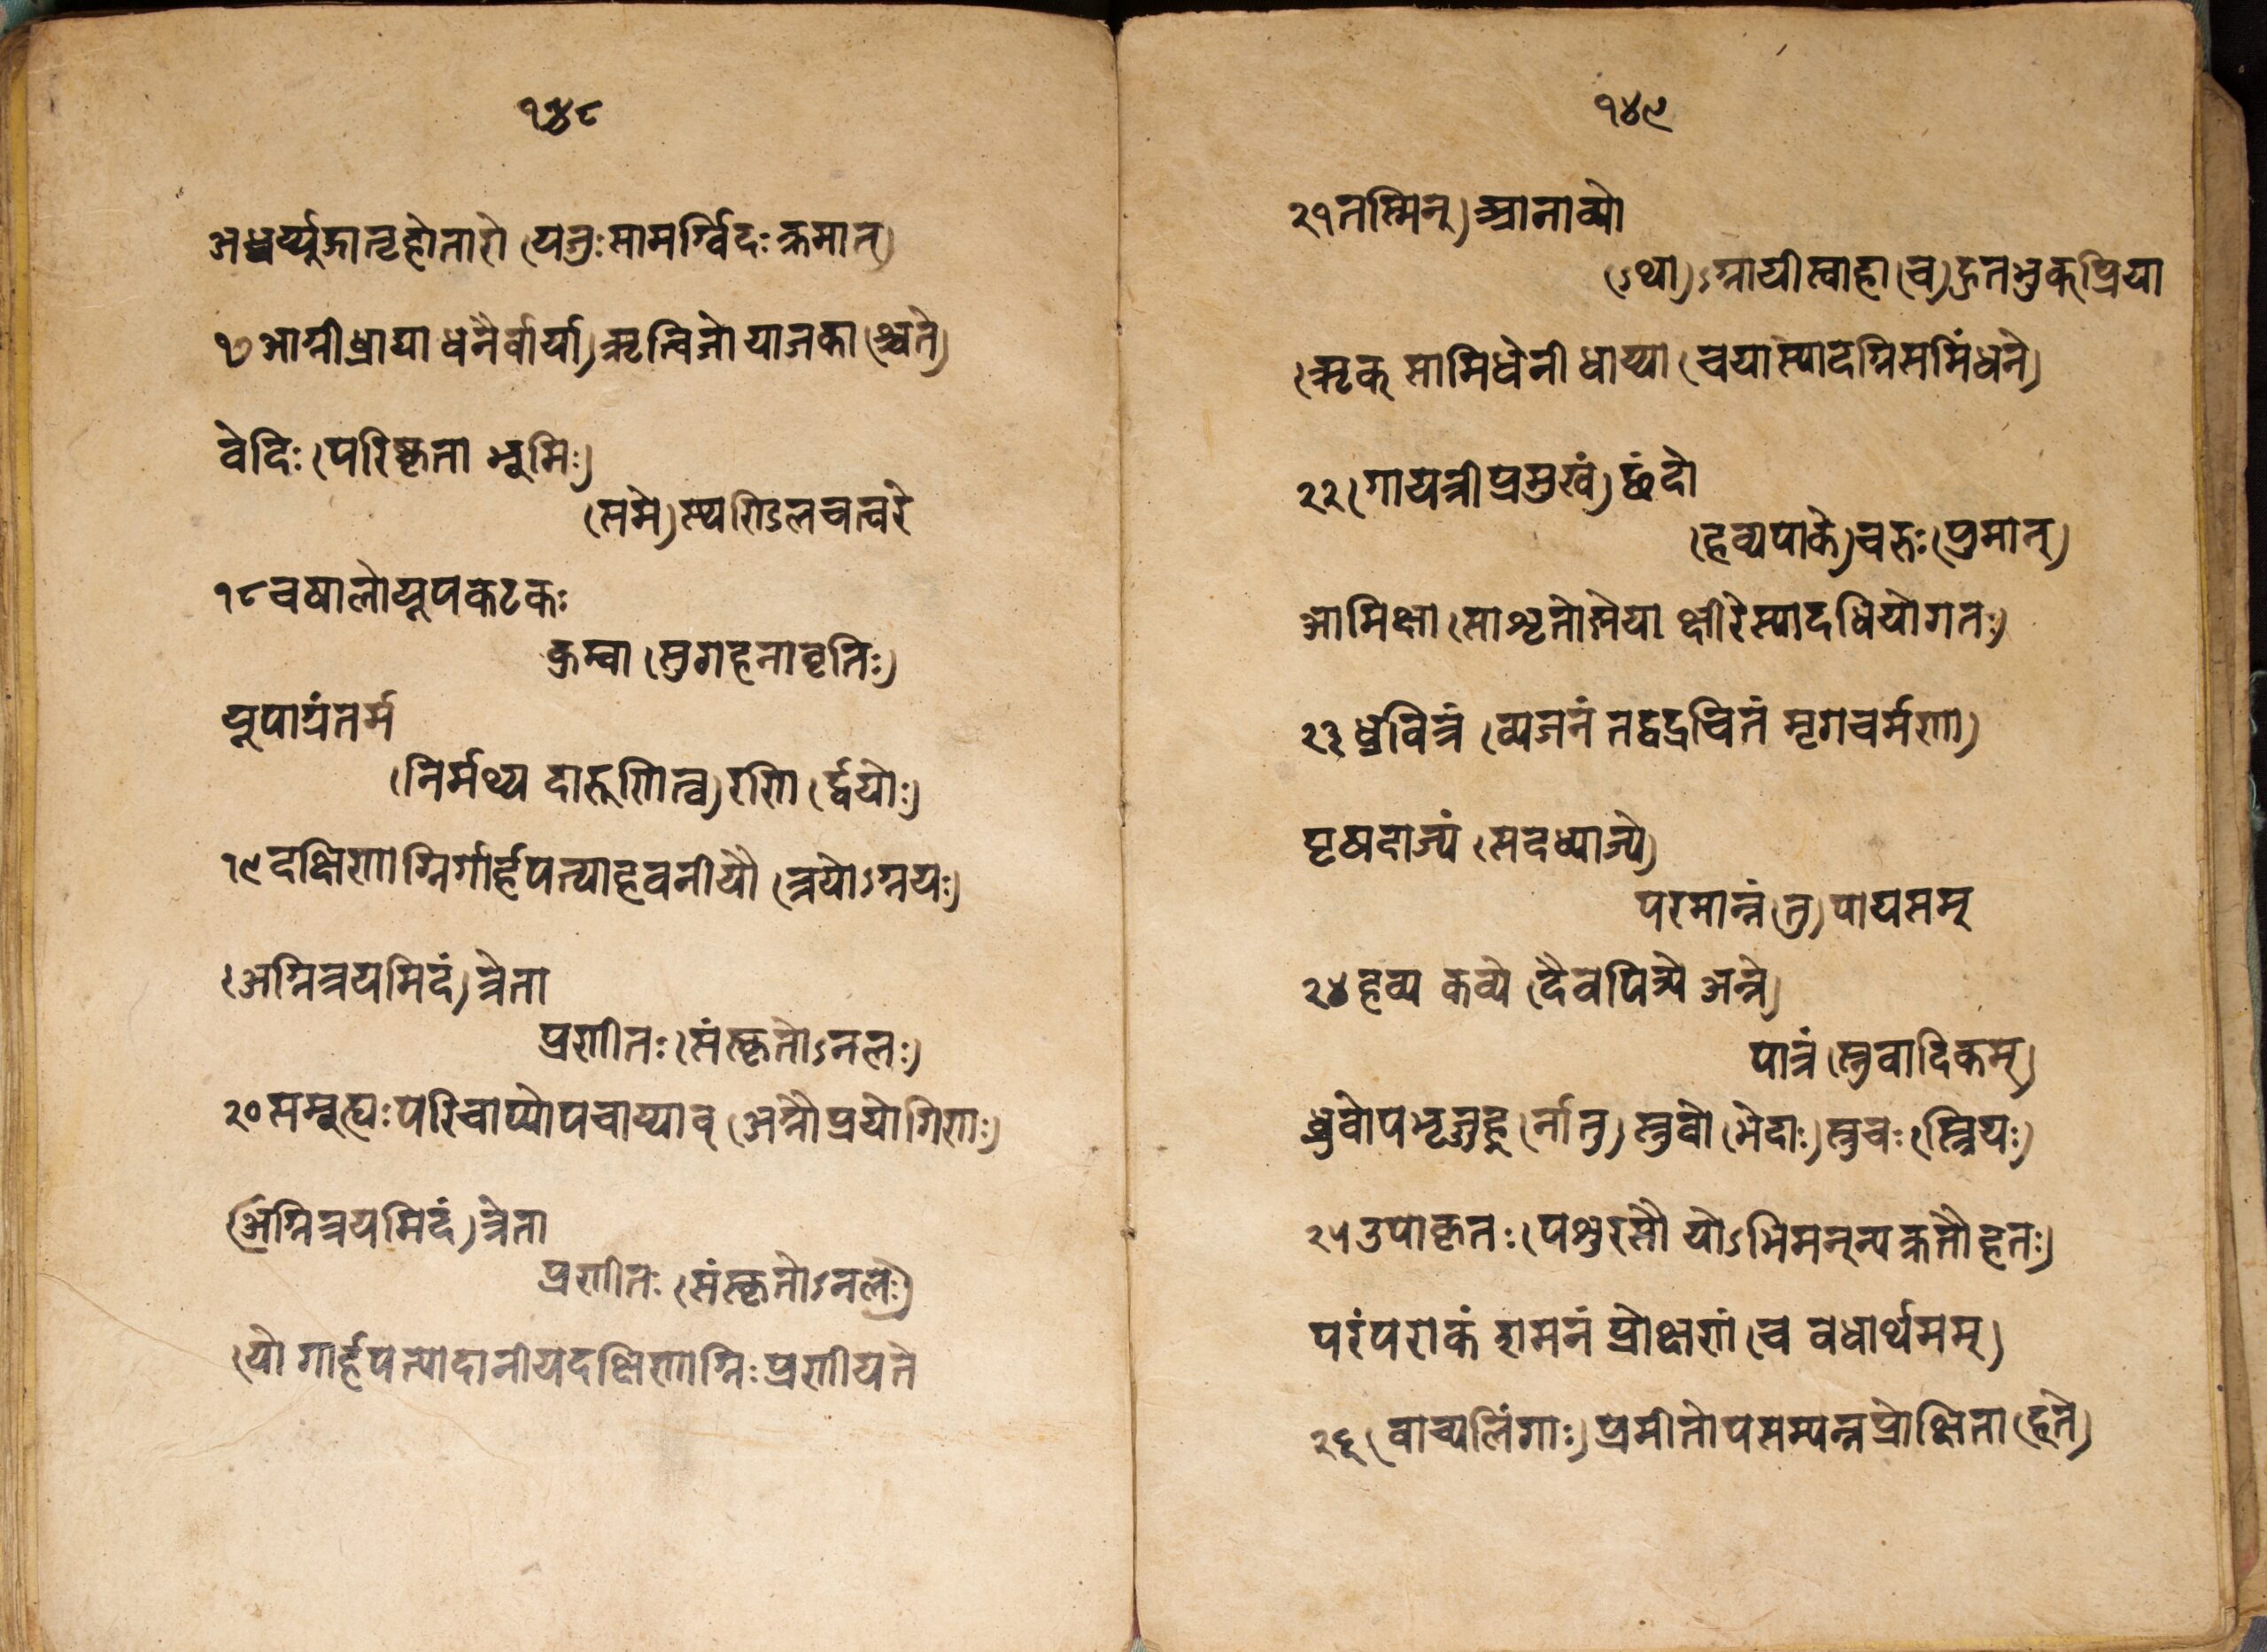 १४८
अध्वर्य्यूद्गातृहोतारो (यजुःसामर्ग्विदःक्रमात्)
१७ आग्नीध्राद्या धनैर्वार्या) ऋत्विजो याजका (श्चते)
वेदिः (परिष्कृता भूमिः)
(समे) स्थणिडलचत्वरे
१८ चषालोयूपकटकः
कुम्बा (सुगहनावृतिः)
यूपाग्रंतर्म
(निर्मथ्य दारूणित्व) रणि (र्द्वयोः)
१९ दक्षिणाग्निर्गार्हपत्याहवनीयौ (त्रयोऽग्नयः)
(अग्नित्रयमिदं) त्रेता
प्रणीतः (संस्कृतोऽनलः)
२० समूह्यःपरिचाय्योपचाय्याव् (अग्नौप्रयोगिणः)
(अग्नित्रयमिदं) त्रेता
प्रणीतः (संस्कृतोऽनलः)
(यो गार्हपत्यादानीयदक्षिणाग्निःप्रणीयते
१४९
२१ तस्मिन्) आनाय्यो
(ऽथा)ऽग्नायीस्वाहा (च) हुतभुक्प्रिया
(ऋक् सामिधेनी धाय्या (चयास्यादग्निसमिंधने)
२२ (गायत्रीप्रमुखं) छंदो
(हव्यपाके) चरुः (पुमान्)
आमिक्षा (साशृतोष्णेया क्षीरेस्यादधियोगतः)
२३ धुवित्रं (व्यजनं तद्यद्रचितं मृगचर्मणा)
पृषदाज्यं (सदध्याज्ये)
परमान्नं (तु) पायसम्
२४ हव्य कव्ये (दैवपित्र्ये अन्ने)
पात्रं (स्रुवादिकम्)
ध्रुवोपभृज्जुहू (र्नातु) स्रुवो (भेदाः) स्रुचः (स्त्रियः)
२५ उपाकृतः (पशुरसौ योऽभिमन्त्र्यक्रतौहतः)
परंपराकं शमनं प्रोक्षणं (च वधार्थमम्)
२६ (वाच्यलिंगाः) प्रमीतोपसम्पन्नप्रोक्षिता (हते)